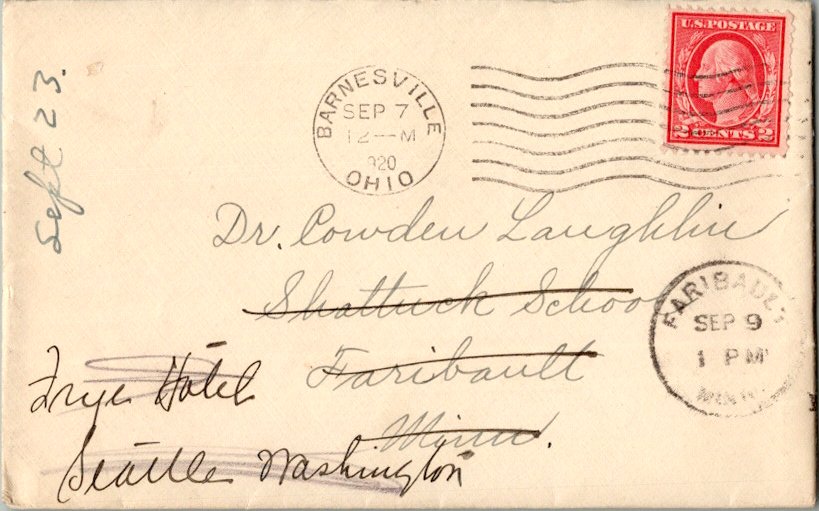 U.S. POSTAGE
2 CENTS 2
BARNESVILLE
SEP 7
12—M
1920
OHIO
Sept 23.
Dr. Cowden Laughlin
Shattuck School
Faribault
Minn.
FARIBAULT
SEP 9
1 PM
MINN.
Frye Hotel
Seattle Washington